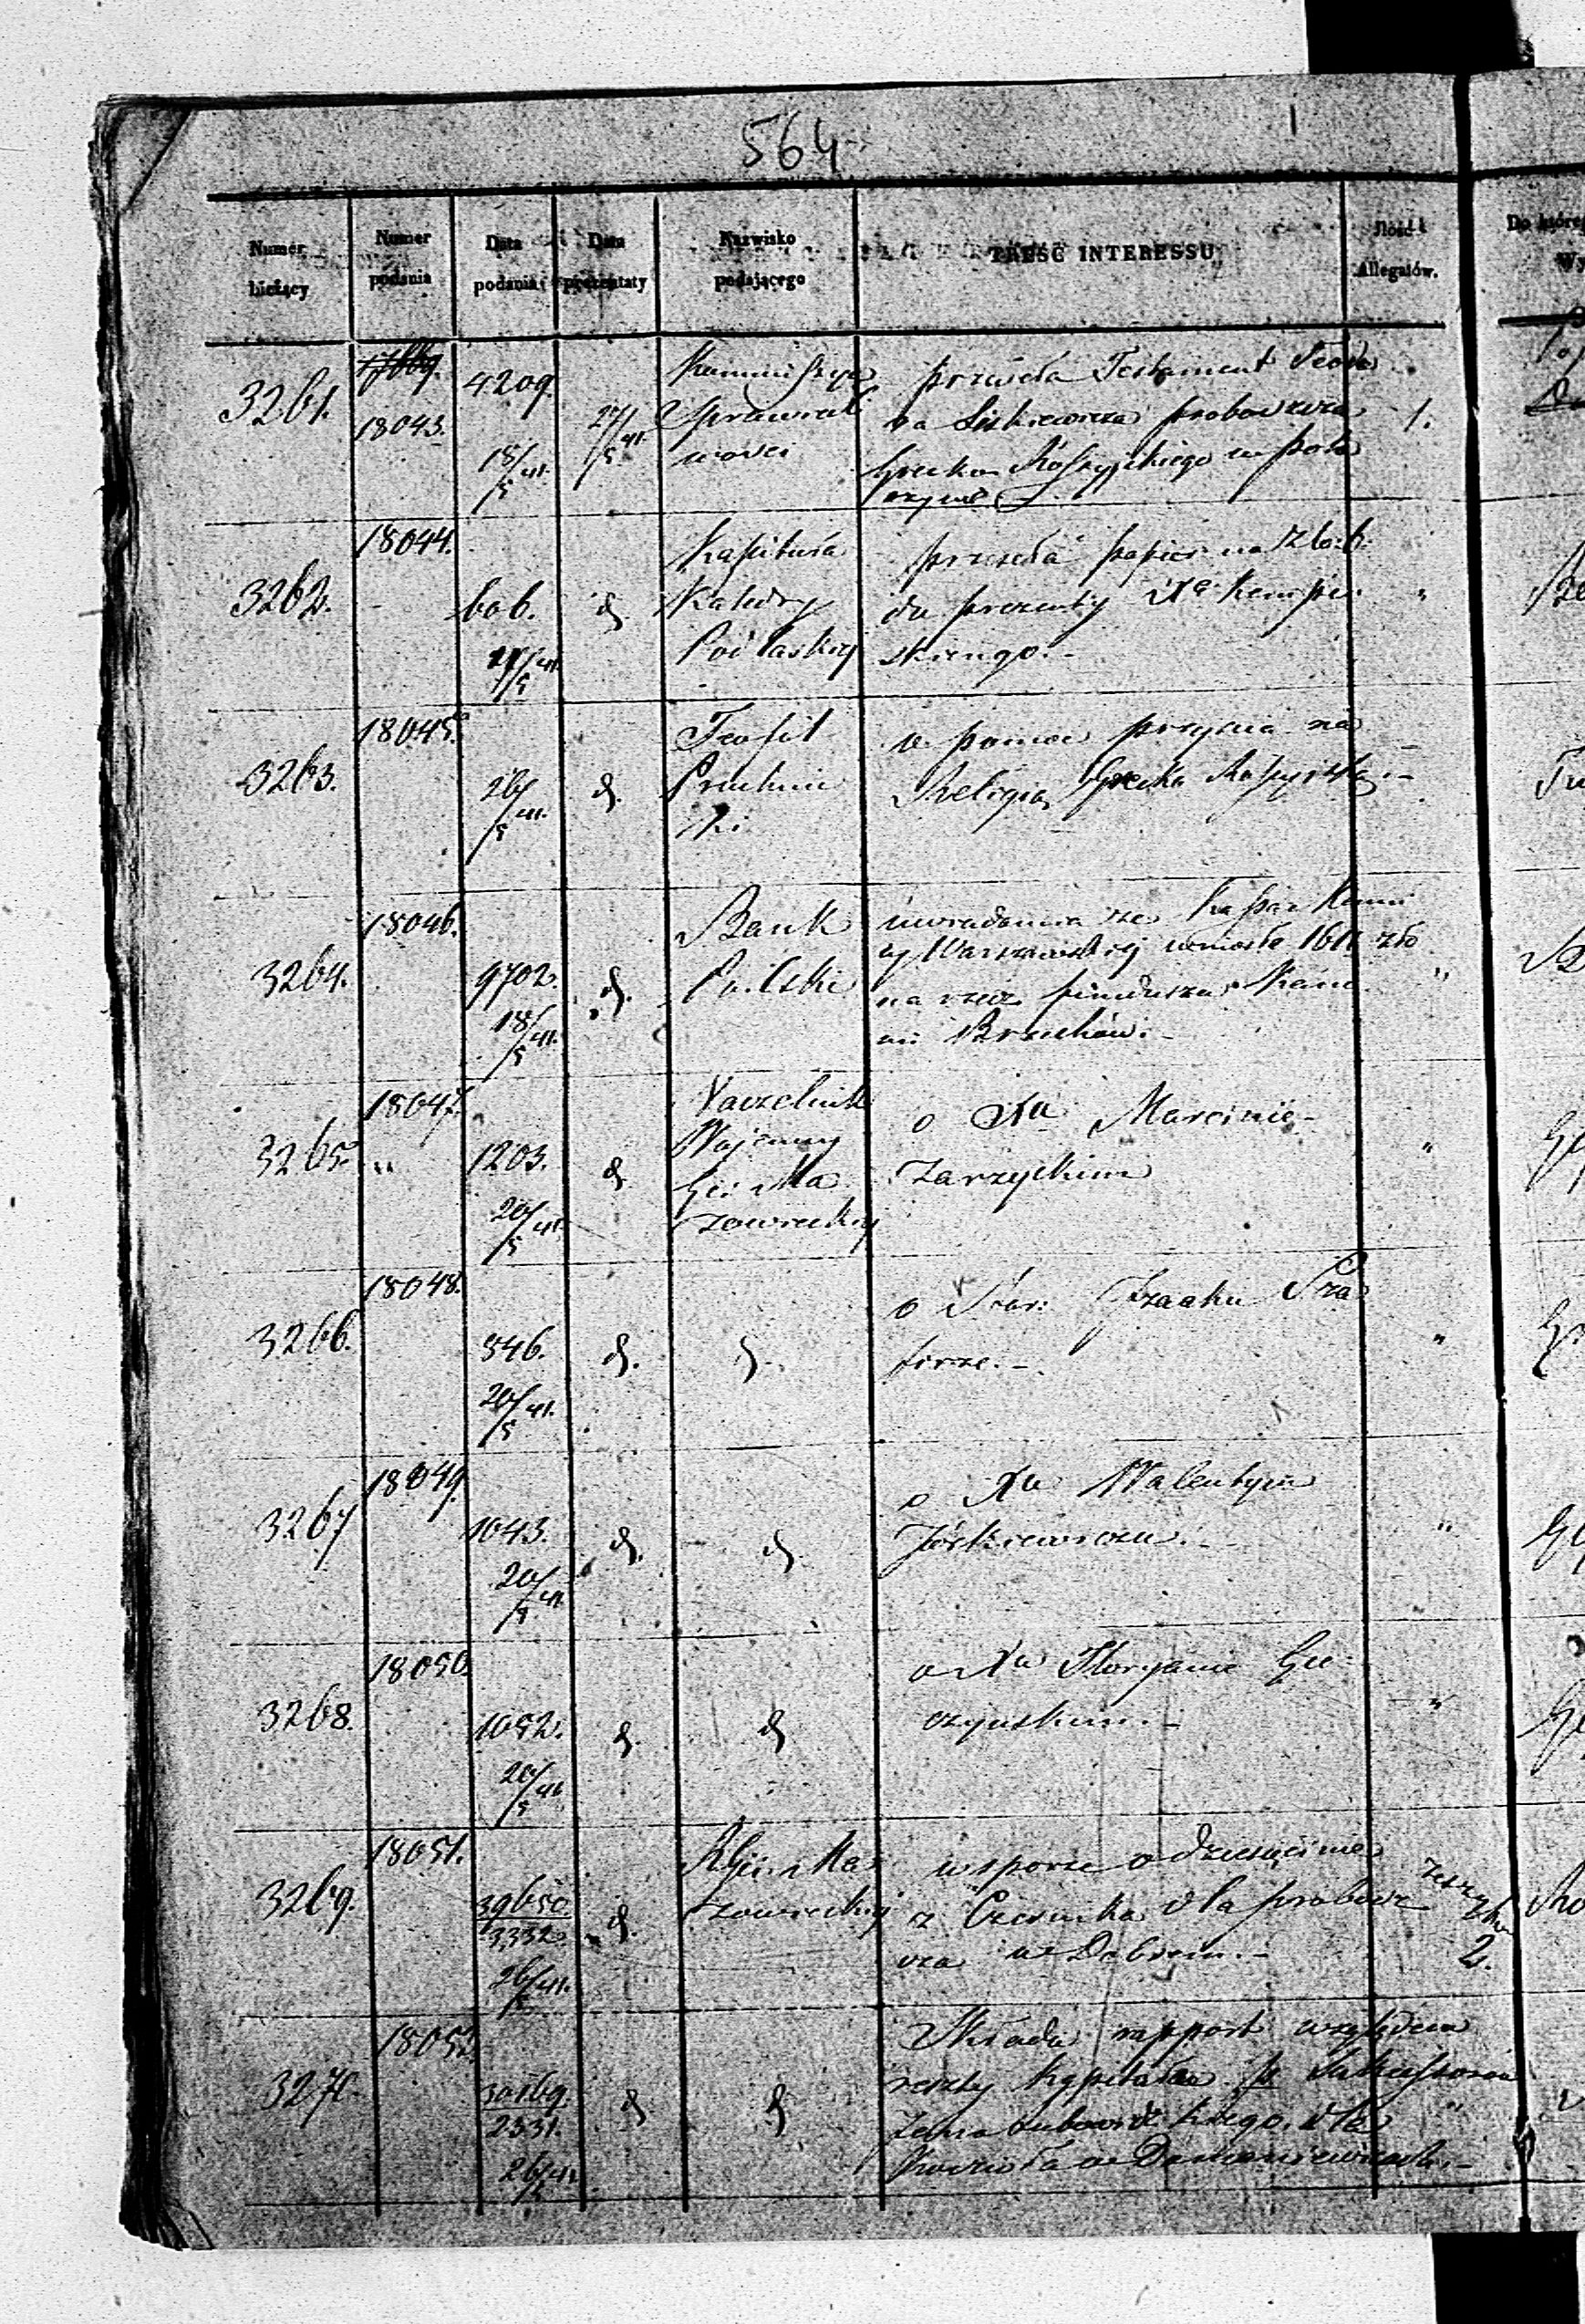 564
Numer bieżący
Numer podania
Data podania
Data prezentaty
Nazwisko podającego
TREŚĆ INTERESSU
Ilość Allegatów.
Do które
Wy
3261.
18043.
4209.
18/5 41.
27/5 41.
Kommissya
Sprawiedli
wości
przesyła Testament Teodo
ra Liskiewicza proboszcza
Grecko Rossyjskiego w
1.
3262.
18044.
606.
/5 41.
d.
Kapituła
Katedry
Podlaskiej
przesyła papier na Zł. 6.
do prezenty Xa Kempi
skiego.-
"
3263.
18045.
26/5 41.
d.
Teofil
Pruchnic
ki
Religią Grecko Rossyjską.-
3264.
18046.
9702.
18/5 41.
d.
Bank
Polski
uwiadamia że Kassa
Warszawskiej wniosła 1611 zło
na rzecz funduszu
"
3265.
18047.
1203.
20/5 41.
d.
Naczelnik
Wojenny
Gu: Ma
zowieckiej
o Xu Marcinie
Zarzyckim
"
3266.
18048.
546.
20/5 41.
d.
d.
o Star: Izaaku Sza
firze.-
"
3267
18049.
1043.
20/5 41.
d.
d.
o Xu Walentym
Józkiewiczu.-
"
3268.
18050.
1052.
20/5 41.
d.
d
o Xu Floryanie Gu
czyńskim.-
"
3269.
18051.
39650.
3332.
26/5 41.
d.
R. Gu: Ma
zowieckiej
w sporze o dziesięcinę
z Czernika dla probosz
cza w Dobrem.-
zeszyty
2.
3270.
18052.
30169
2331.
26/5 41.
d
d
Składa rapport względem
reszty kapitału
Jana Lubowidzkiego, dla
Kościoła w Domaniewicach.-
"